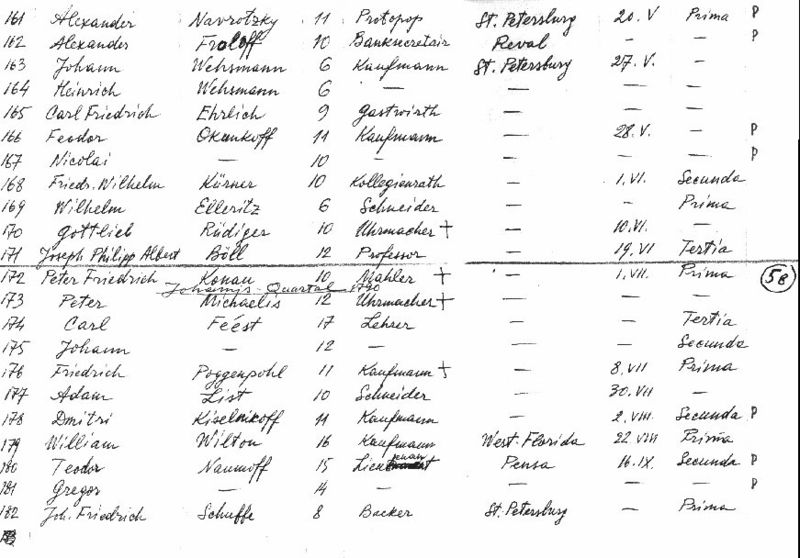 161 Alexander Navrotzky 11 Protopop St. Petersburg 20. V Prima P
162 Alexander Froloff 10 Banksecretair Reval — — P
163 Johann Wehsmann 6 Kaufmann St. Petersburg 27. V. —
164 Heinrich Wehsmann 6 — — — —
165 Carl Friedrich Ehrlich 9 Gastwirth — — —
166 Feodor Okunkoff 11 Kaufmann — 28. V. — P
167 Nicolai — 10 — — — — P
168 Friedr. Wilhelm Kürner 10 Kollegienrath — 1. VI. Secunda
169 Wilhelm Elleritz 6 Schneider — — Prima
170 Gottlieb Rüdiger 10 Uhrmacher + — 10. VI. —
171 Joseph Philipp Albert Böll 12 Professor — 19. VI Tertia
172 Peter Friedrich Konau 10 Mahler + — 1. VII. Prima 58
Johannis-Quartal 1790
173 Peter Michaelis 12 Uhrmacher + — — —
174 Carl Féest 17 Lehrer — — Tertia
175 Johann — 12 — — — Secunda
176 Friedrich Poggenpohl 11 Kaufmann + — 8. VII Prima
177 Adam List 10 Schneider — 30. VII —
178 Dmitri Kiselnikoff 11 Kaufmann — 2. VIII. Secunda P
179 William Wilton 16 Kaufmann West Florida 22. VIII Prima
180 Teodor Naumoff 15 Lieutenant Pensa 16. IX. Secunda P
181 Gregor — 14 — — — — P
182 Joh. Friedrich Schuffe 8 Backer St. Petersburg — Prima